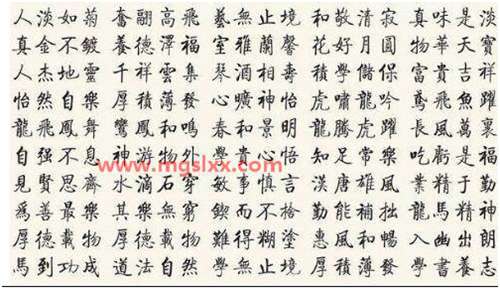 人淡如菊 奮翮高飛 藝無止境 和敬清寂 真味是淡
真金不鍍 養德澤福 室雅蘭馨 花好月圓 物華天寶
人杰地靈 千祥雲集 琴酒相壽 積學儲保 富貴吉祥
怡然自樂 厚積薄發 心曠神怡 虎嘯龍吟 鳶飛魚躍
龍飛鳳舞 鸞鳳和鳴 春和景明 龍騰虎躍 長風萬裏
自强不息 神游物外 學貫心悟 知足常樂 吃虧是福
www.mgslxx.com
見賢思齊 水滴石穿 敏事慎言 漢唐雄風 業精于勤
爲善最樂 其樂無窮 鍥而不捨 勤能補拙 龍馬精神
厚德載物 厚德載物 難得糊塗 惠風和暢 入幽出朗
馬到功成 道法自然 學無止境 厚積薄發 學書養志